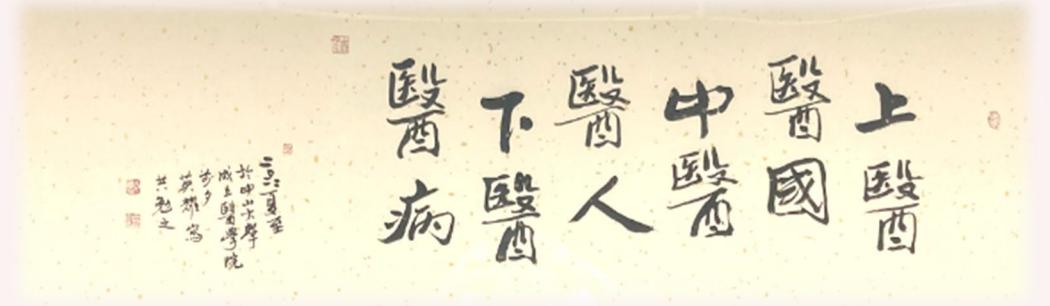 上醫
醫國
中醫
醫人
下醫
醫病
二〇二二夏至
於中山大學
成立醫學院
前夕
英耀寫
共勉之